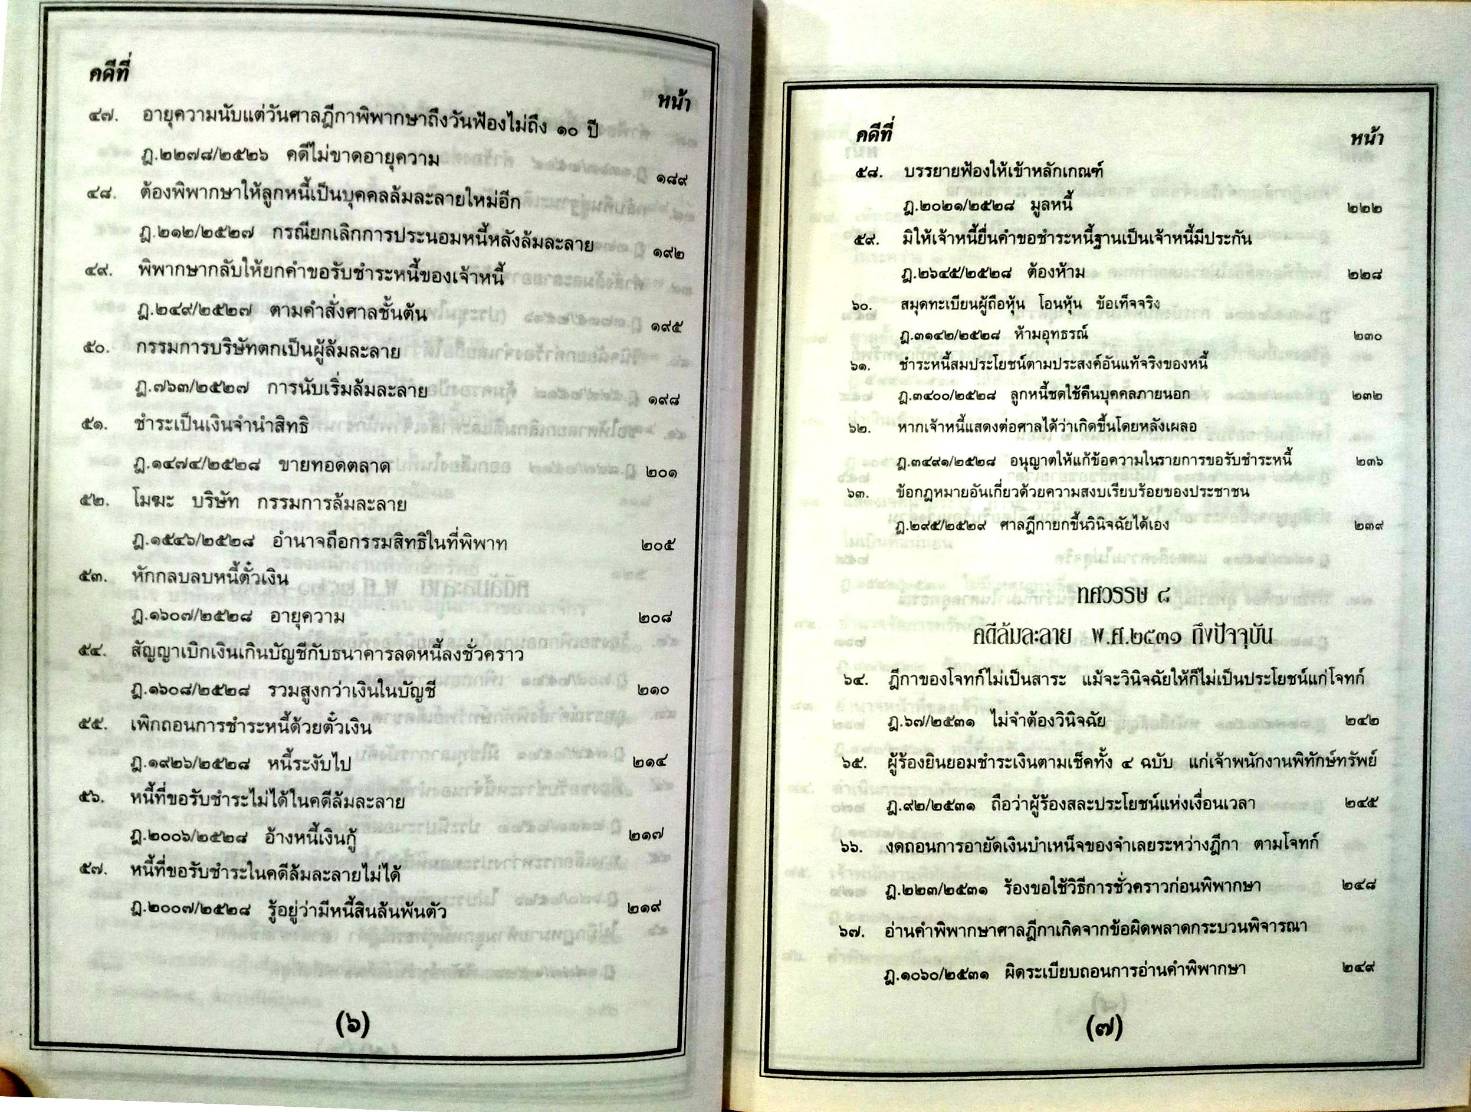 คดีที่
หน้า
๔๗. อายุความนับแต่วันศาลฎีกาพิพากษาถึงวันฟ้องไม่ถึง ๑๐ ปี
ฎ.๒๒๗๘/๒๕๒๖ คดีไม่ขาดอายุความ ๑๘๙
๔๘. ต้องพิพากษาให้ลูกหนี้เป็นบุคคลล้มละลายใหม่อีก
ฎ.๒๑๒/๒๕๒๗ กรณียกเลิกการประนอมหนี้หลังล้มละลาย ๑๙๒
๔๙. พิพากษากลับให้ยกคำขอรับชำระหนี้ของเจ้าหนี้
ฎ.๒๔๙/๒๕๒๗ ตามคำสั่งศาลชั้นต้น ๑๙๕
๕๐. กรรมการบริษัทตกเป็นผู้ล้มละลาย
ฎ.๗๖๓/๒๕๒๗ การนับเริ่มล้มละลาย ๑๙๘
๕๑. ชำระเป็นเงินจำนำสิทธิ
ฎ.๑๔๗๔/๒๕๒๘ ขายทอดตลาด ๒๐๑
๕๒. โมฆะ บริษัท กรรมการล้มละลาย
ฎ.๑๕๔๖/๒๕๒๘ อำนาจถือกรรมสิทธิในที่พิพาท ๒๐๕
๕๓. หักกลบลบหนี้ตั๋วเงิน
ฎ.๑๖๐๗/๒๕๒๘ อายุความ ๒๐๘
๕๔. สัญญาเบิกเงินเกินบัญชีกับธนาคารลดหนี้ลงชั่วคราว
ฎ.๑๖๐๘/๒๕๒๘ รวมสูงกว่าเงินในบัญชี ๒๑๐
๕๕. เพิกถอนการชำระหนี้ด้วยตั๋วเงิน
ฎ.๑๙๒๖/๒๕๒๘ หนี้ระงับไป ๒๑๔
๕๖. หนี้ที่ขอรับชำระไม่ได้ในคดีล้มละลาย
ฎ.๒๐๐๖/๒๕๒๘ อ้างหนี้เงินกู้ ๒๑๗
๕๗. หนี้ที่ขอรับชำระในคดีล้มละลายไม่ได้
ฎ.๒๐๐๗/๒๕๒๘ รู้อยู่ว่ามีหนี้สินล้นพ้นตัว ๒๑๙
(๖)
คดีที่ หน้า
๕๘. บรรยายฟ้องให้เข้าหลักเกณฑ์
ฎ.๒๐๒๑/๒๕๒๘ มูลหนี้ ๒๒๒
๕๙. มิให้เจ้าหนี้ยื่นคำขอชำระหนี้ฐานเป็นเจ้าหนี้มีประกัน
ฎ.๒๖๔๕/๒๕๒๘ ต้องห้าม ๒๒๘
๖๐. สมุดทะเบียนผู้ถือหุ้น โอนหุ้น ข้อเท็จจริง
ฎ.๓๑๔๒/๒๕๒๘ ห้ามอุทธรณ์ ๒๓๐
๖๑. ชำระหนี้สมประโยชน์ตามประสงค์อันแท้จริงของหนี้
ฎ.๓๔๐๐/๒๕๒๘ ลูกหนี้ชดใช้คืนบุคคลภายนอก ๒๓๒
๖๒. หากเจ้าหนี้แสดงต่อศาลได้ว่าเกิดขึ้นโดยหลังเผลอ
ฎ.๓๔๙๑/๒๕๒๘ อนุญาตให้แก้ข้อความในรายการขอรับชำระหนี้ ๒๓๖
๖๓. ข้อกฎหมายอันเกี่ยวด้วยความสงบเรียบร้อยของประชาชน
ฎ.๒๙๕/๒๕๒๙ ศาลฎีกายกขึ้นวินิจฉัยได้เอง ๒๓๙
ทศวรรษ ๘
คดีล้มละลาย พ.ศ.๒๕๓๑ ถึงปัจจุบัน
๖๔. ฎีกาของโจทก์ไม่เป็นสาระ แม้จะวินิจฉัยให้ก็ไม่เป็นประโยชน์แก่โจทก์
ฎ.๖๗/๒๕๓๑ ไม่จำต้องวินิจฉัย ๒๔๒
๖๕. ผู้ร้องยินยอมชำระเงินตามเช็คทั้ง ๔ ฉบับ แก่เจ้าพนักงานพิทักษ์ทรัพย์
ฎ.๙๒/๒๕๓๑ ถือว่าผู้ร้องสละประโยชน์แห่งเงื่อนเวลา ๒๔๕
๖๖. งดถอนการอายัดเงินบำเหน็จของจำเลยระหว่างฎีกา ตามโจทก์
ฎ.๒๒๓/๒๕๓๑ ร้องขอใช้วิธีการชั่วคราวก่อนพิพากษา ๒๔๘
๖๗. อ่านคำพิพากษาศาลฎีกาเกิดจากข้อผิดพลาดกระบวนพิจารณา
ฎ.๑๐๖๐/๒๕๓๑ ผิดระเบียบถอนการอ่านคำพิพากษา ๒๔๙
(๗)